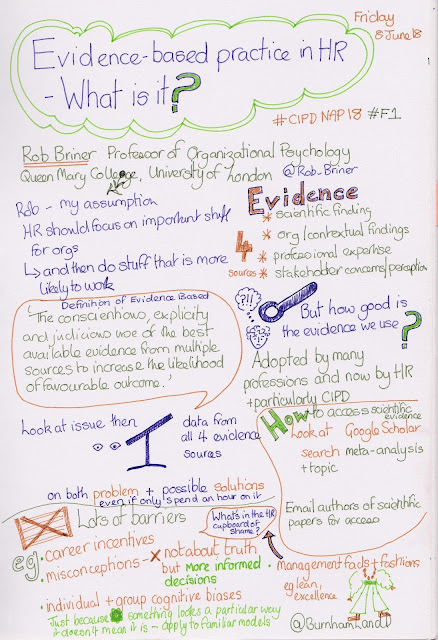 Friday
8 June 18
Evidence-based practice in HR
- What is it?
#CIPD NAP18 #F1
Rob Briner Professor of Organizational Psychology
Queen Mary College, University of London @Rob_Briner
Rob - my assumption
HR should focus on important stuff
for orgs
↳ and then do stuff that is more
likely to work
Evidence
4
sources
* scientific finding
* org/contextual findings
* professional expertise
* stakeholder concerns/perception
Definition of Evidence Based
'The conscientious, explicity
and judicious use of the best
available evidence from multiple
sources to increase the likelihood
of favourable outcome.'
?!!
But how good is
the evidence we use?
Adopted by many
professions and now by HR
+ particularly CIPD
Look at issue then
data from
all 4 evidence
soures
on both problem + possible solutions
even if only spend an hour on it
How to access scientific
evidence
Look at Google Scholar
search meta-analysis
+ topic
Email authors of scientific
papers for access
Lots of barriers
What's in the HR
cupboard of
shame?
eg. • career incentives
• misconceptions - x not about truth
but more informed
decisions
• individual + group cognitive biases
Just because something looks a particular way
it doesn't mean it is - apply to familiar models
• management fads + fashions
eg lean,
excellence
@BurnhamLandD